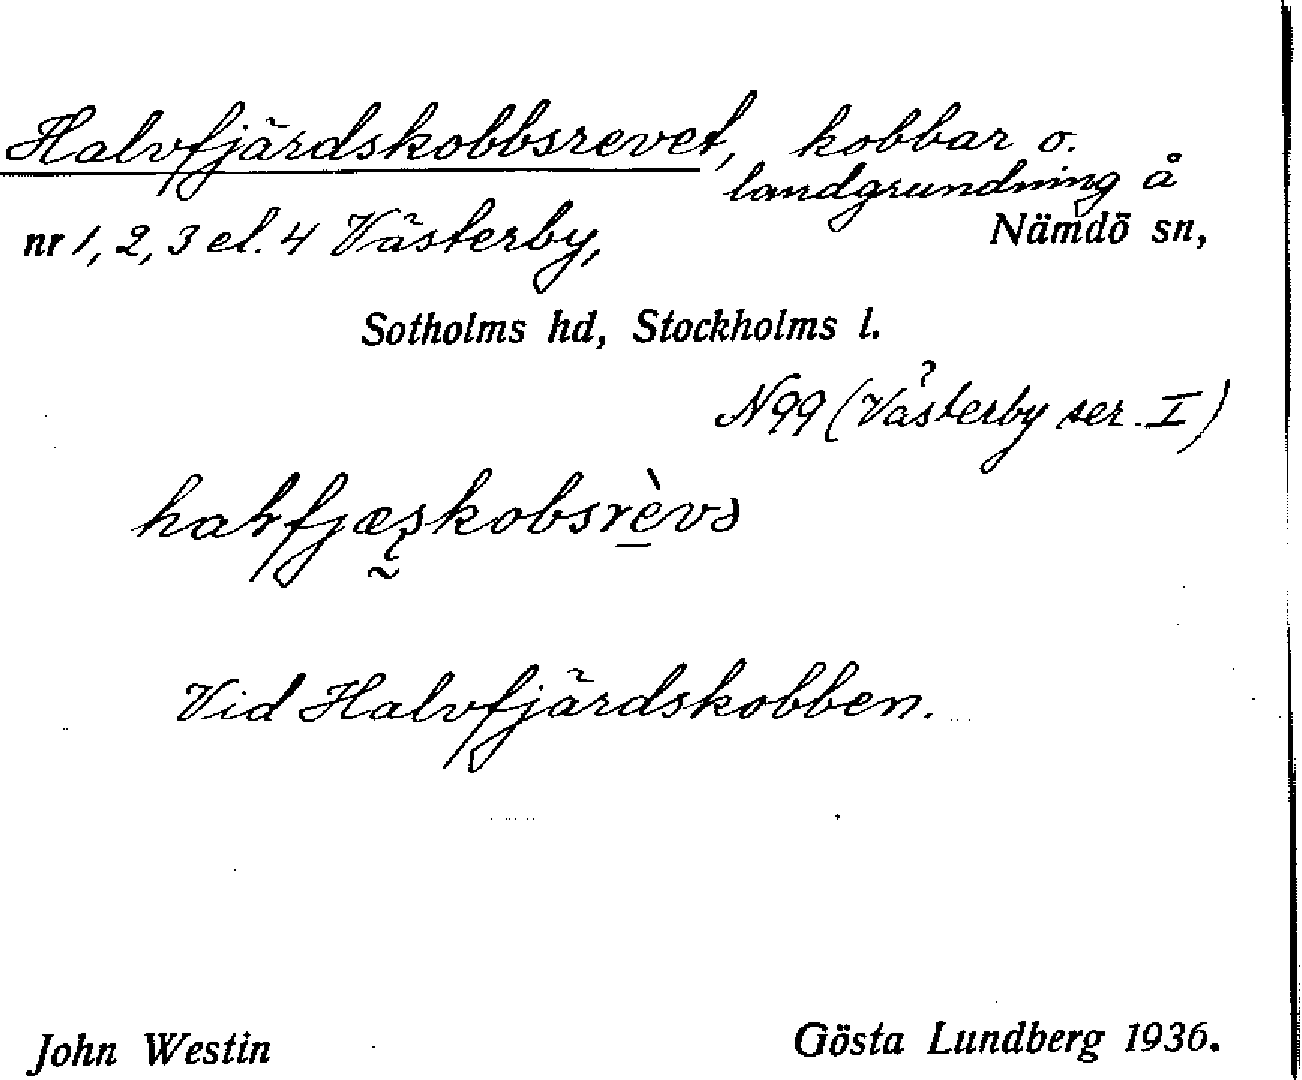 Halvfjärdskobbsrevet, kobbar o.
landgrundning å
nr 1, 2, 3 el. 4 Västerby, Nämdö sn,
Sotholms hd, Stockholms l.
N99 (Västerby ser. I)
Vid Halvfjärdskobben.
John Westin Gösta Lundberg 1936.